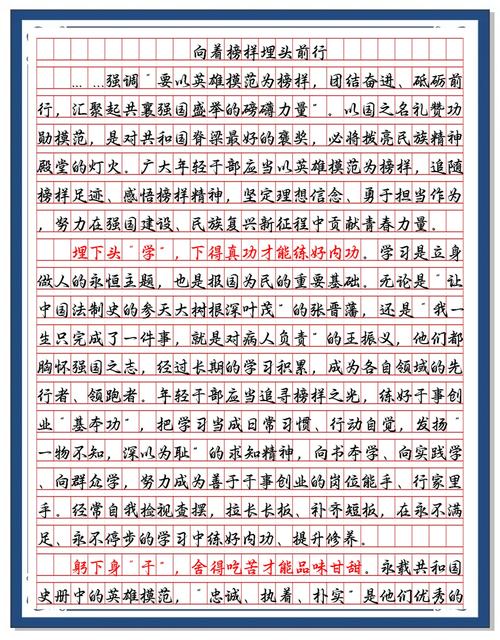 向着榜样埋头前行
... ...强调“要以英雄模范为榜样，团结奋进、砥砺前
行，汇聚起共襄强国盛举的磅礴力量”。以国之名礼赞功
勋模范，是对共和国脊梁最好的褒奖，必将拨亮民族精神
殿堂的灯火。广大年轻干部应当以英雄模范为榜样，追随
榜样足迹、感悟榜样精神，坚定理想信念、勇于担当作为
，努力在强国建设、民族复兴新征程中贡献青春力量。
埋下头“学”，下得真功才能练好内功。学习是立身
做人的永恒主题，也是报国为民的重要基础。无论是“让
中国法制史的参天大树根深叶茂”的张晋藩，还是“我一
生只完成了一件事，就是对病人负责”的王振义，他们都
胸怀强国之志，经过长期的学习积累，成为各自领域的先
行者、领跑者。年轻干部应当追寻榜样之光，练好干事创
业“基本功”，把学习当成日常习惯、行动自觉，发扬“
一物不知，深以为耻”的求知精神，向书本学、向实践学
、向群众学，努力成为善于干事创业的岗位能手、行家里
手。经常自我检视查摆，拉长长板、补齐短板，在永不满
足、永不停步的学习中练好内功、提升修养。
躬下身“干”，舍得吃苦才能品味甘甜。永载共和国
史册中的英雄模范，“忠诚、执着、朴实”是他们优秀的